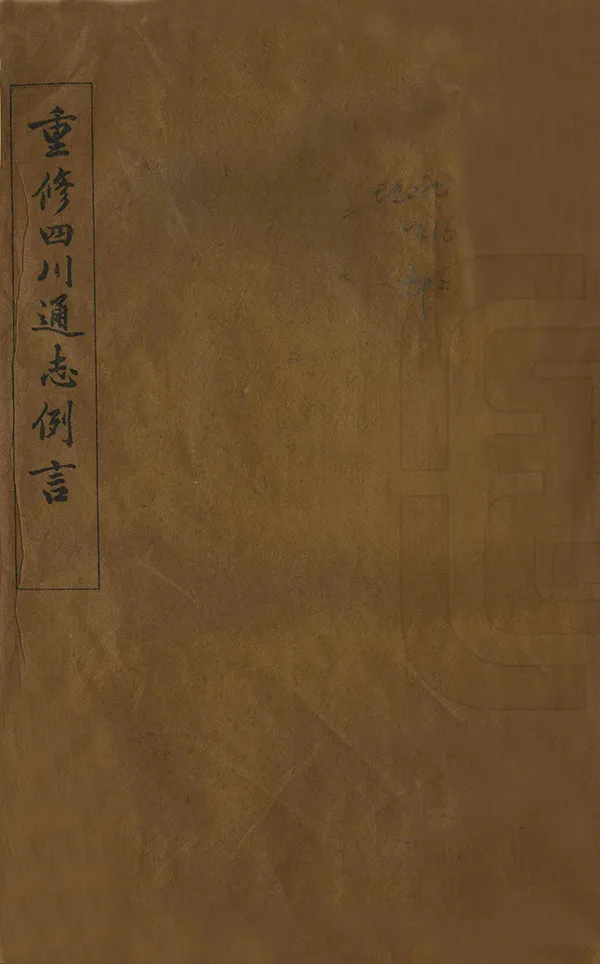 重修四川通志例言